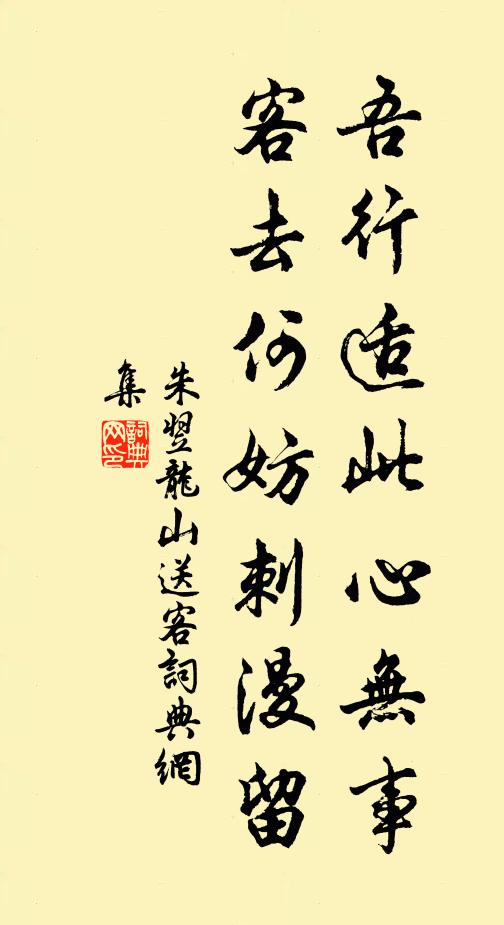 吾行适此心無事
客去何妨刺漫留
朱翌龍山送客詞典網
集
詞典
网印